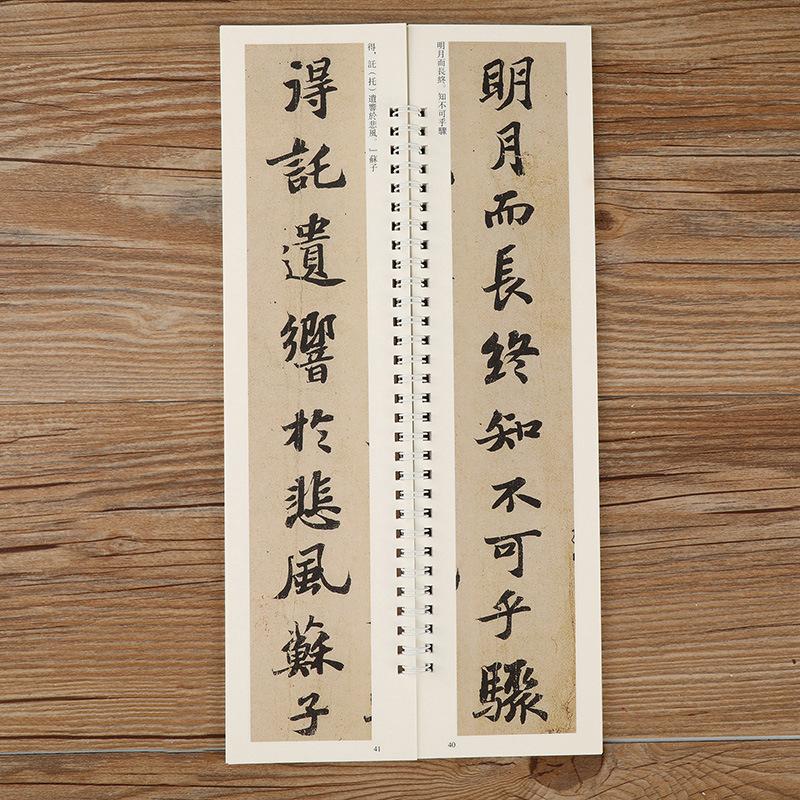 明月而長終。知不可乎驟
明月而長終知不可乎驟
40
得，託（托）遺響於悲風。」蘇子
得託遺響於悲風蘇子
41